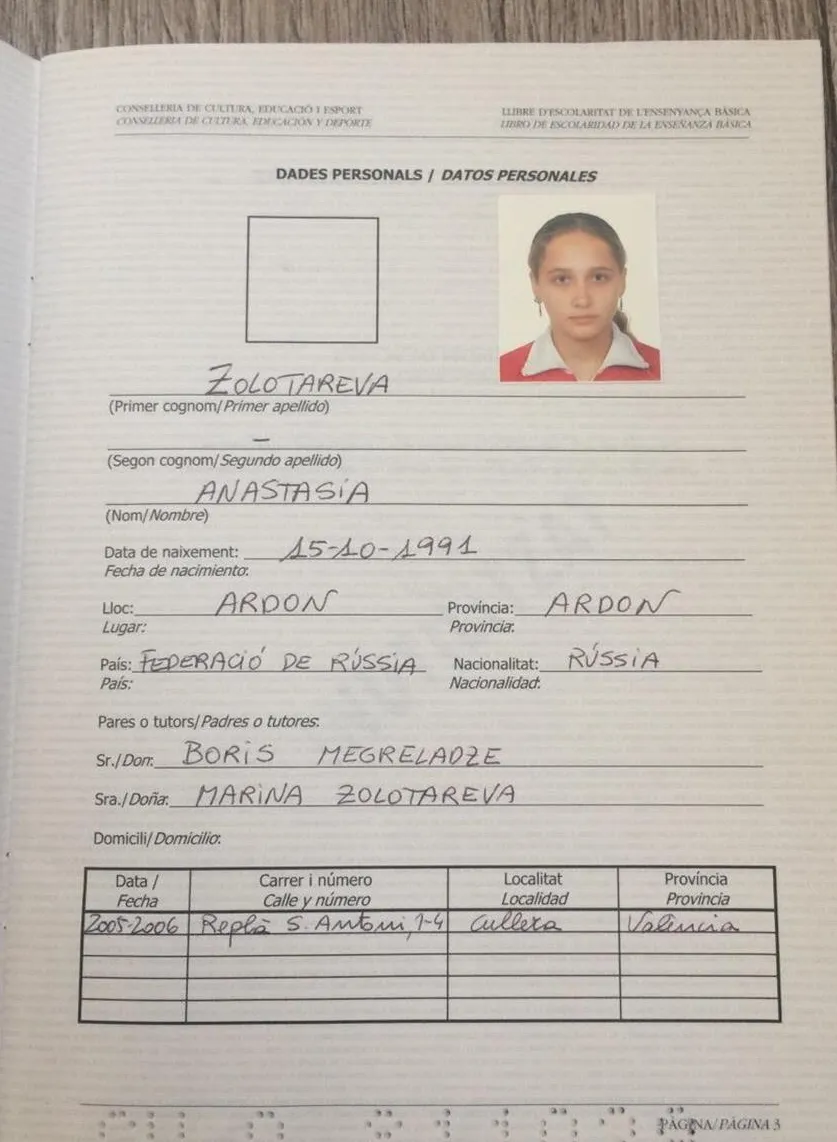 CONSELLERIA DE CULTURA, EDUCACIÓ I ESPORT
CONSELLERIA DE CULTURA, EDUCACIÓN Y DEPORTE
LLIBRE D'ESCOLARITAT DE L'ENSENYANÇA BÀSICA
LIBRO DE ESCOLARIDAD DE LA ENSEÑANZA BÁSICA
DADES PERSONALS / DATOS PERSONALES
ZOLOTAREVA
(Primer cognom/Primer apellido)
–
(Segon cognom/Segundo apellido)
ANASTASIA
(Nom/Nombre)
Data de naixement: 15-10-1991
Fecha de nacimiento:
Lloc: ARDON Província: ARDON
Lugar: Provincia:
País: FEDERACIÓ DE RÚSSIA Nacionalitat: RÚSSIA
País: Nacionalidad:
Pares o tutors/Padres o tutores:
Sr./Don: BORIS MEGRELADZE
Sra./Doña: MARINA ZOLOTAREVA
Domicili/Domicilio:
Data / Carrer i número Localitat Província
Fecha Calle y número Localidad Provincia
2005-2006 Replà S. Antoni, 1-4 Cullera València
PÀGINA/PÁGINA 3